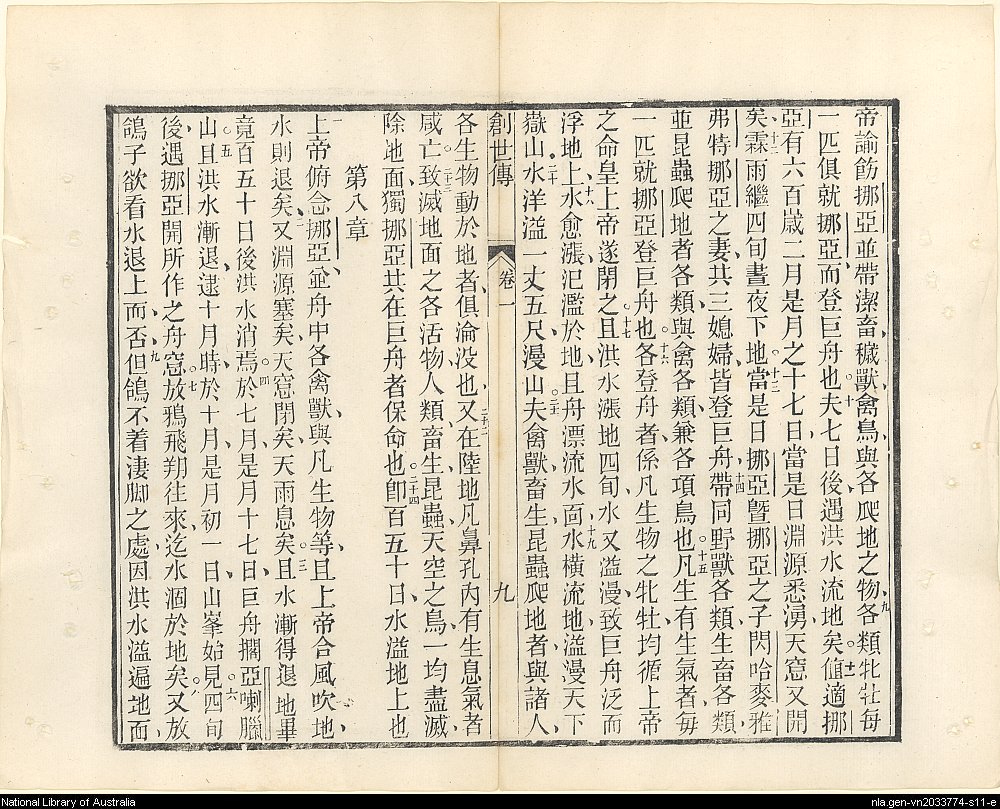 帝諭飭挪亞並帶潔畜穢獸禽鳥與各爬地之物各類牝牡每九
一匹俱就挪亞而登巨舟也十夫七日後遇洪水流地矣十一值適挪
亞有六百歲二月是月之十七日當是日淵源悉湧天窓又開
矣十二霖雨繼四旬晝夜下地十三當是日挪亞曁挪亞之子閃哈麥雅
弗特挪亞之妻共三媳婦皆登巨舟十四帶同野獸各類生畜各類
並昆蟲爬地者各類與禽各類兼各項鳥也十五凡生有生氣者每
一匹就挪亞登巨舟也十六各登舟者係凡生物之牝牡均循上帝
之命皇上帝遂閉之十七且洪水漲地四旬水又溢漫致巨舟泛而
浮地上十八水愈漲汜濫於地且舟漂流水面十九水橫流地溢漫天下
嶽山二十水洋溢一丈五尺漫山二十一夫禽獸畜生昆蟲爬地者與諸人
創世傳 卷一 九
各生物動於地者俱淪没也二十二又在陸地凡鼻孔內有生息氣者
咸亡二十三致滅地面之各活物人類畜生昆蟲天空之鳥一均盡滅
除地面獨挪亞其在巨舟者保命也二十四卽百五十日水溢地上也
第八章
一上帝俯念挪亞並舟中各禽獸與凡生物等且上帝令風吹地
水則退矣二又淵源塞矣天窓閉矣天雨息矣三且水漸得退地畢
竟百五十日後洪水消焉四於七月是月十七日巨舟擱亞喇臘
山五且洪水漸退逮十月時於十月是月初一日山峯始見六四旬
後遇挪亞開所作之舟窓七放鴉飛翔往來迄水涸於地矣八又放
鴿子欲看水退上而否九但鴿不着淒脚之處因洪水溢遍地而
National Library of Australia
nla.gen-vn2033774-s11-e